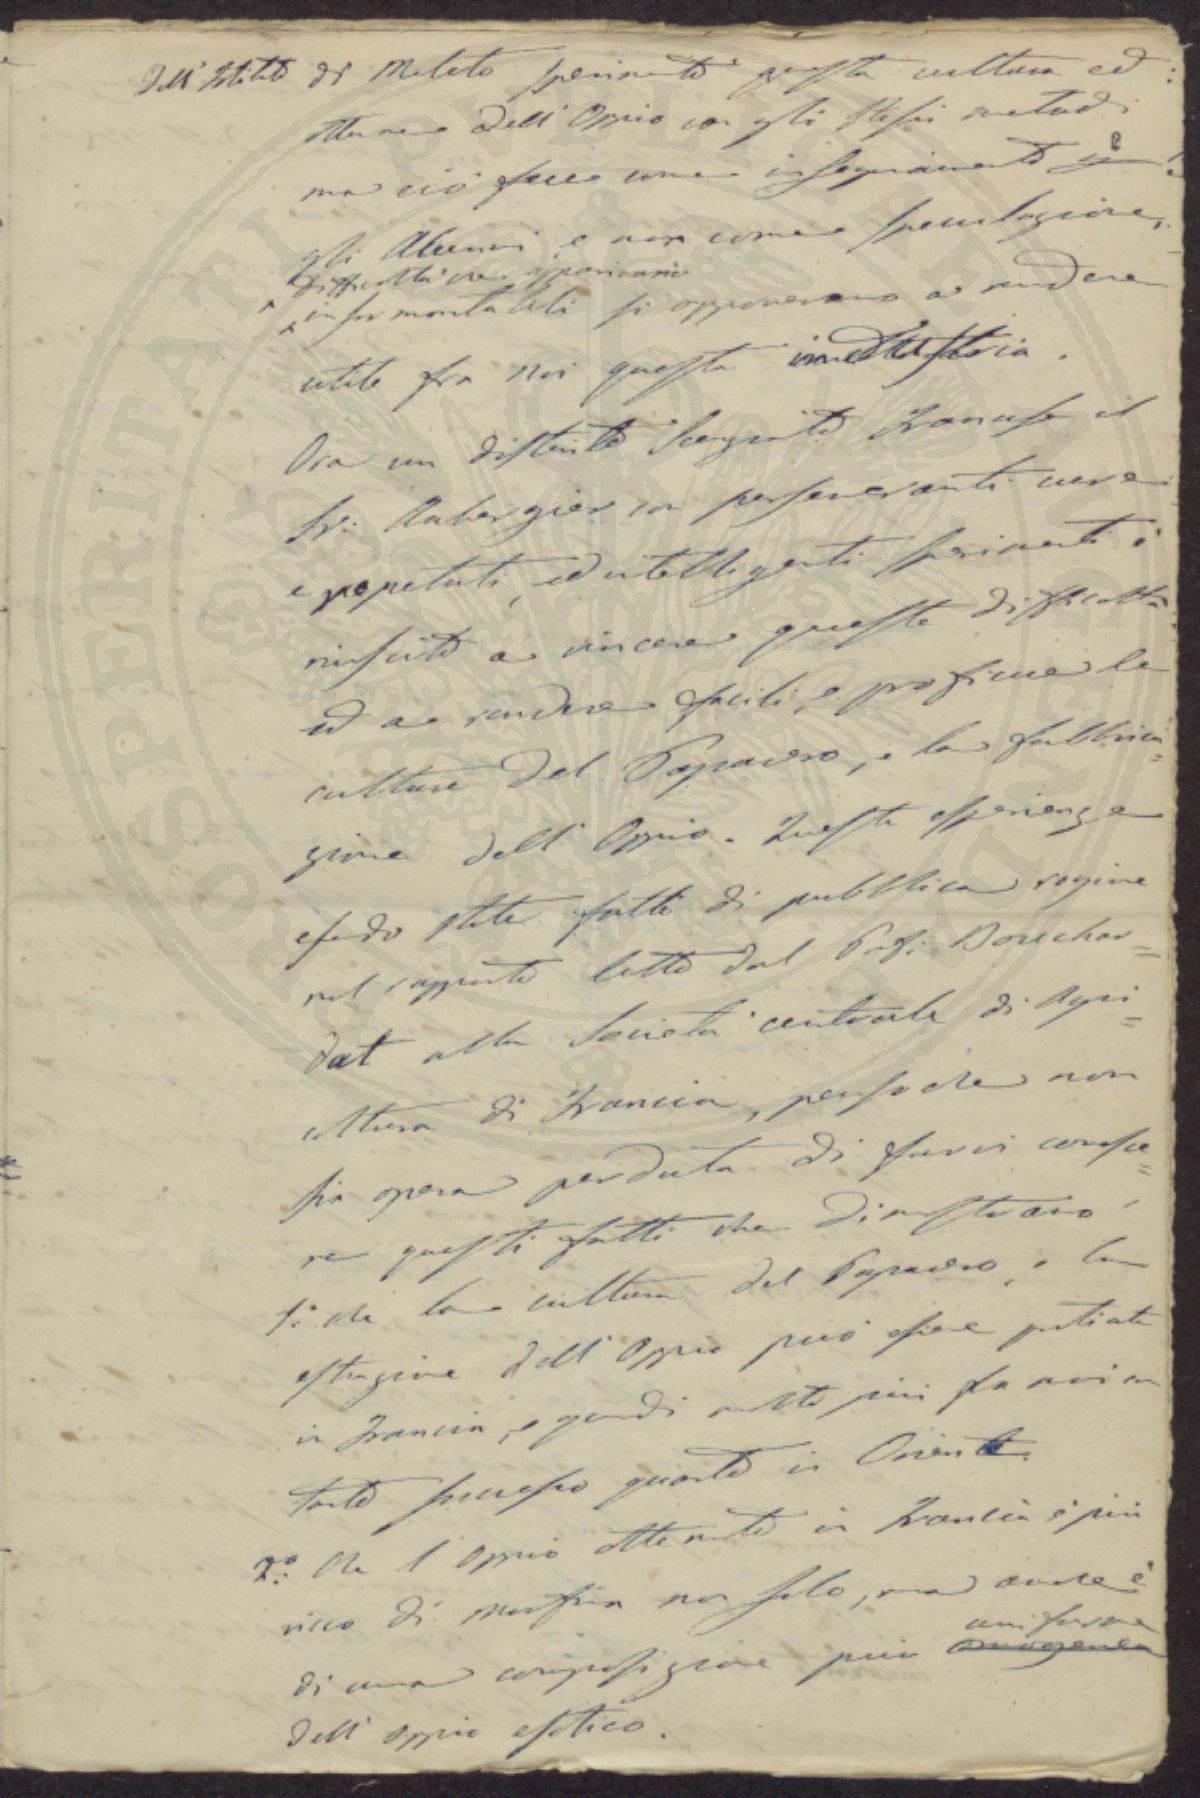 dell'Istituto di Meleto sperimentò questa cultura ed
ottenne dell'Oppio con gli stessi metodi
ma ciò fece come insegnamento
gli Alunni, e non come speculazione,
difficoltà che apparivano
insormontabili si opponevano a rendere
utile fra noi questa industria.
Ora un distinto Scenziato Francese il
Sr: Aubergier con perseveranti cure
e repetuti, ed intelligenti sperimenti è
riuscito a vincere queste difficoltà
ed a rendere facili, e proficue le
culture del Papavero, e la fabbrica=
zione dell'Oppio. Queste esperienze
essendo state fatte di pubblica ragione
nel rapporto letto dal Prof: Bouchar=
dat alla Società centrale di Agri=
cultura di Francia, penso che non
sia opera perduta di farvi conosce=
re questi fatti che dimostrano
1:o che la cultura del Papavero, e la
estrazione dell'Oppio può essere praticata
in Francia, e quindi molto più fra noi con
tanto successo quanto in Oriente.
2:o Che l'Oppio ottenuto in Francia è più
ricco di Morfina non solo, ma anche è
uniforme
di una composizione più omogenea
dell'Oppio esotico.